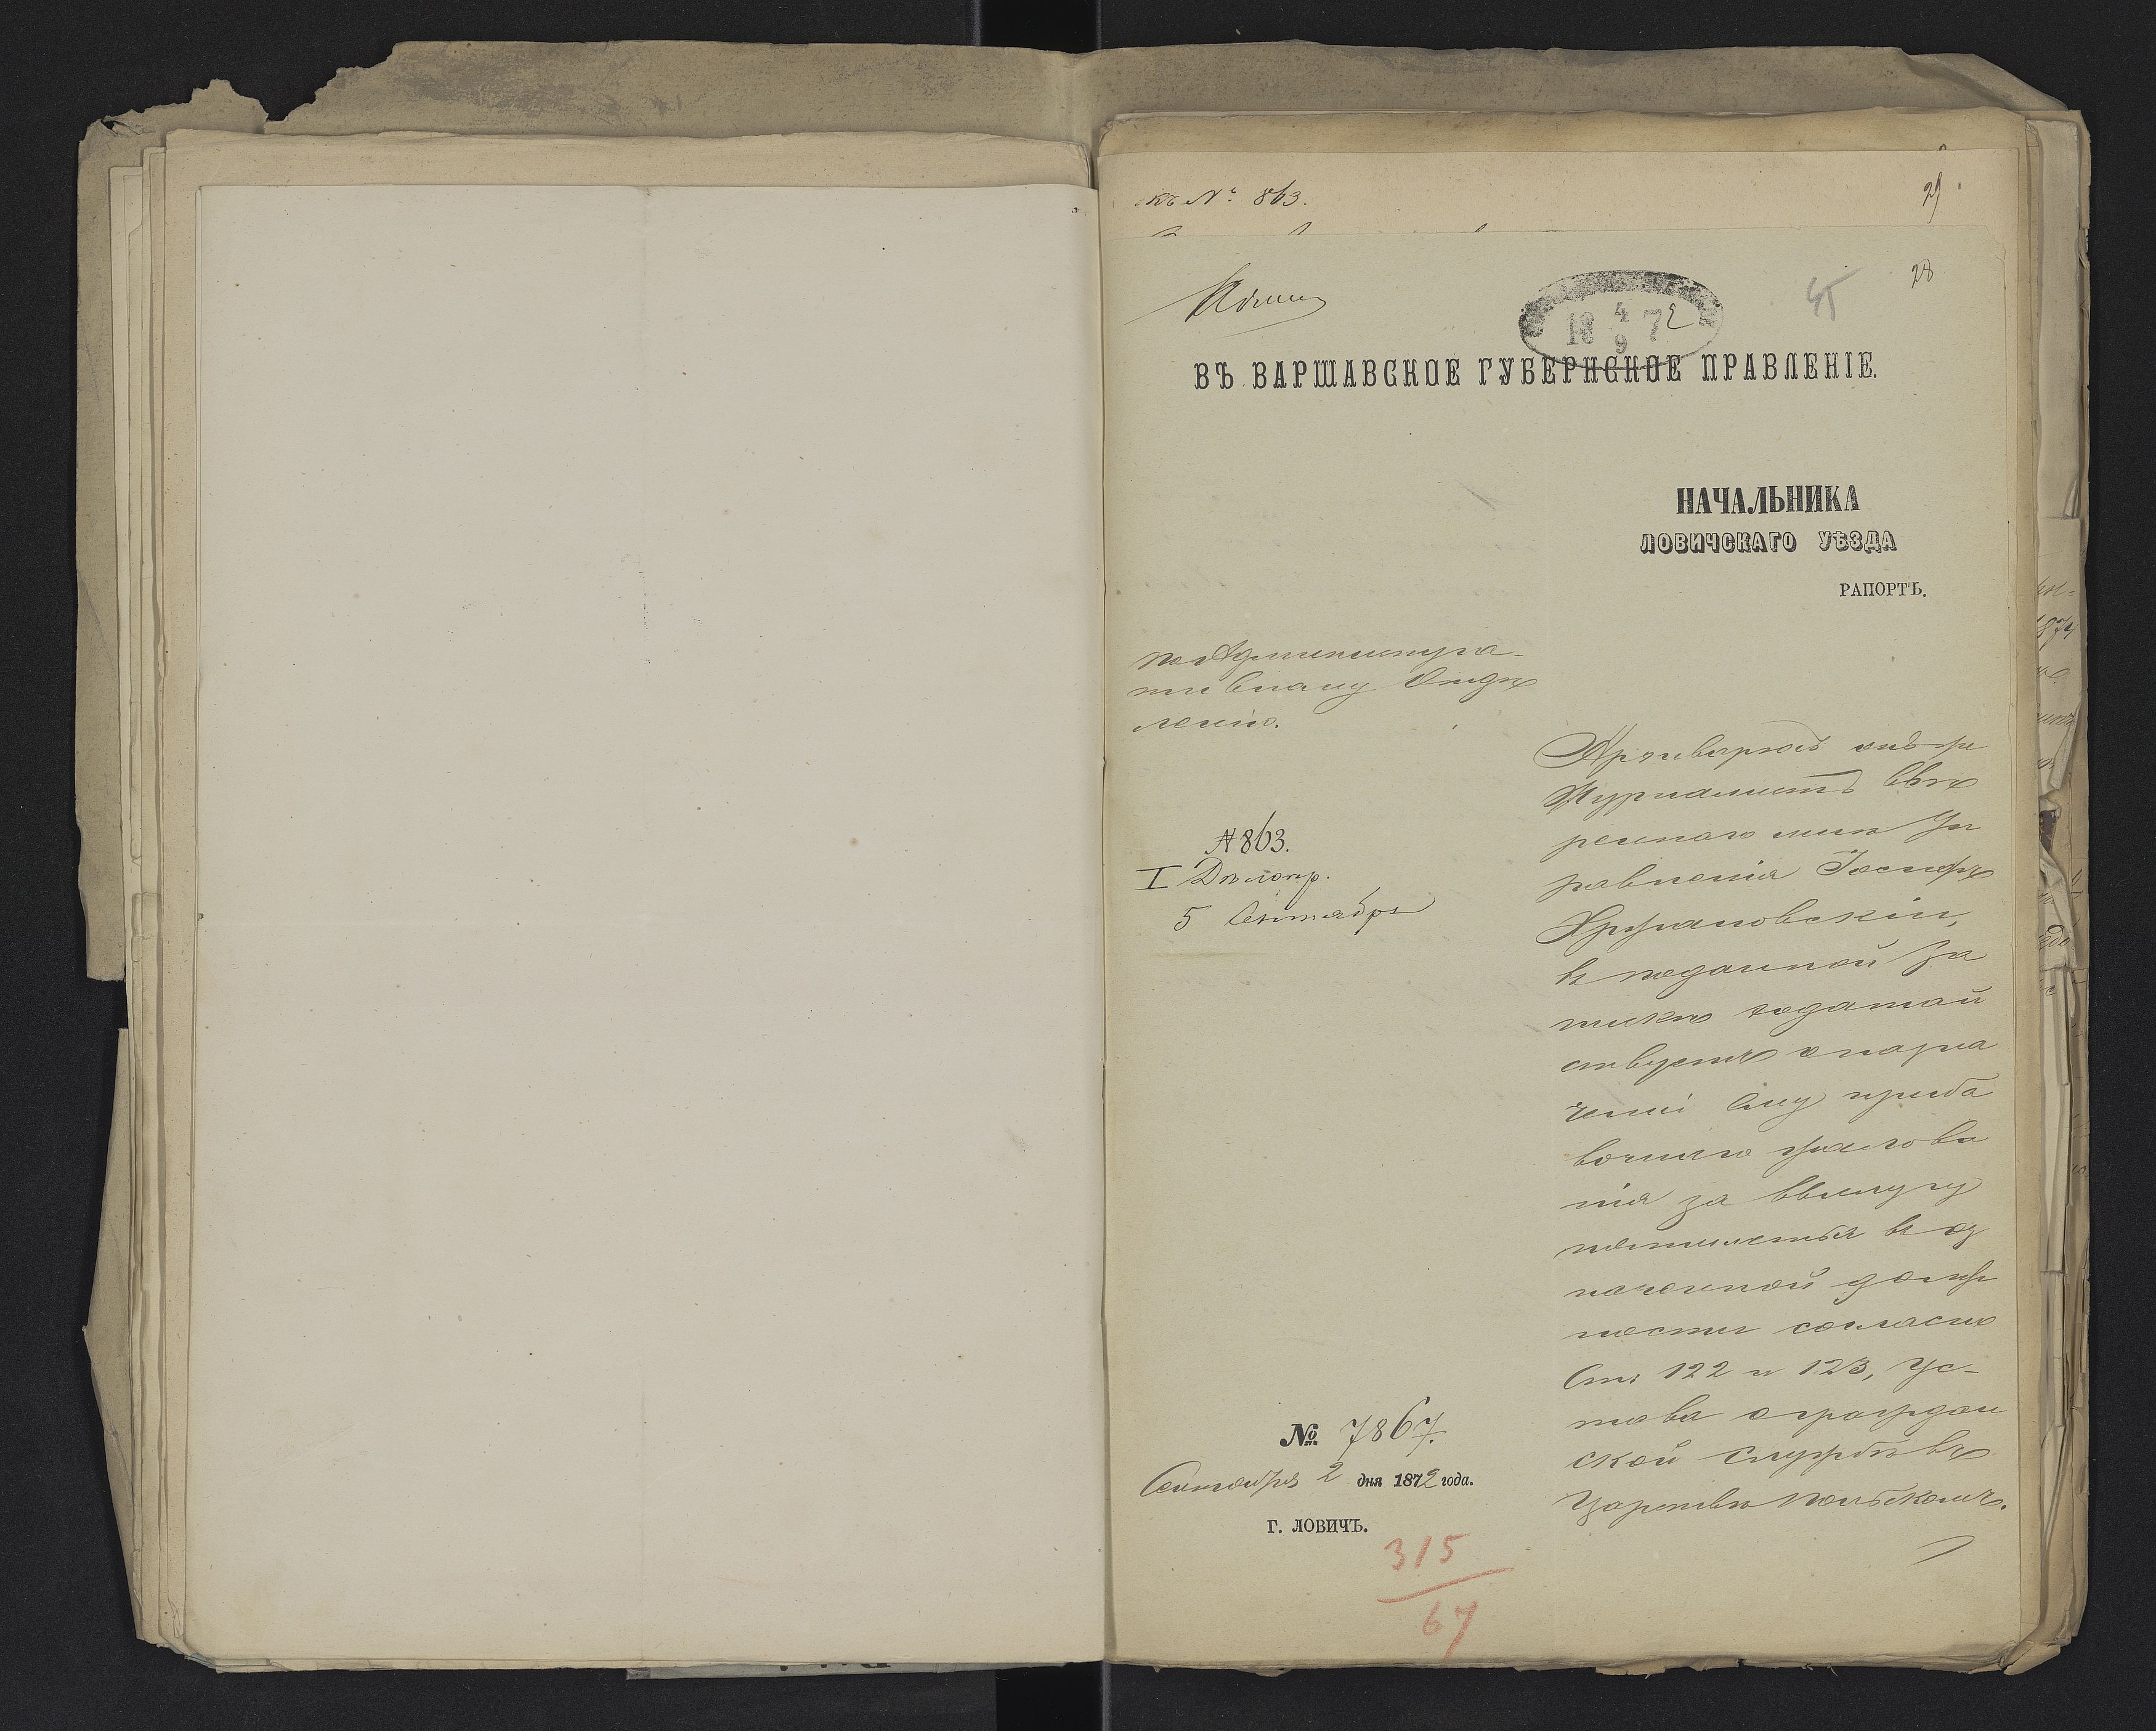 къ № 863.
29
28
45
Адми
18 4/9 72
ВЪ ВАРШАВСКОЕ ГУБЕРНСКОЕ ПРАВЛЕНІЕ.
НАЧАЛЬНИКА
ЛОВИЧСКАГО УѢЗДА
РАПОРТЪ.
по Администра-
тивному Отдѣ
ленію.
№ 863.
I Дѣлопр.
5 Сентября
№ 7867.
Сентября 2 дня 1872 года.
Г. ЛОВИЧЪ.
315
67
Архиваріусъ онъ же
Журналистъ ввѣ
реннаго мнѣ Уп
равленія Іосифъ
Хржановскій,
въ поданной за
пискѣ ходатай
ствуетъ о назна
ченіи ему приба
вочнаго жалова
нія за выслугу
пятилѣтія въ оз
наченной долж
ности согласно
Ст. 122 и 123, Ус-
тава о граждан
ской службѣ въ
Царствѣ Польскомъ.